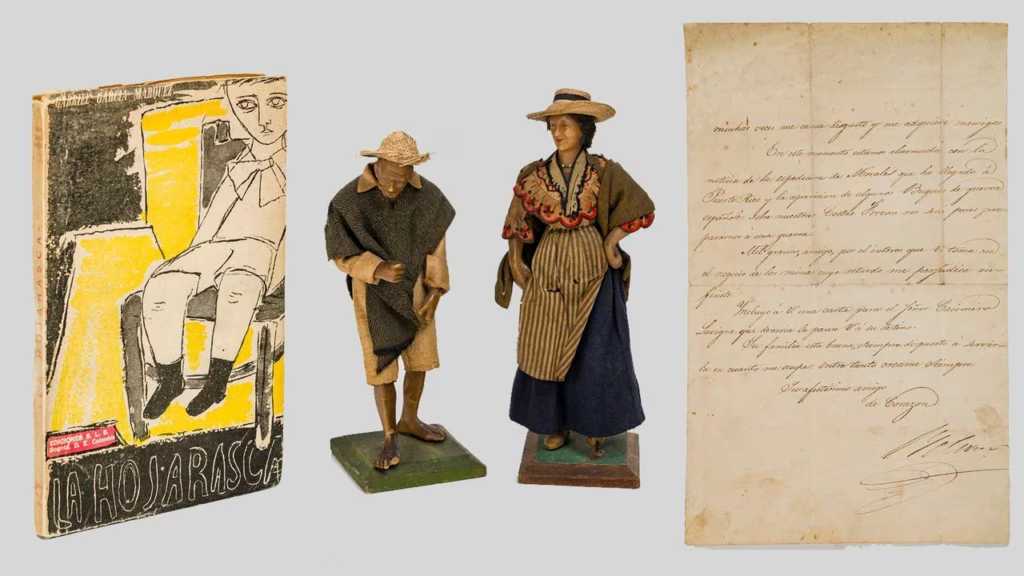 GABRIEL GARCIA MARQUEZ
LA HOJARASCA
EDICIONES S. L. B.
Bogotá, D. E. Colombia
LA HOJARASCA
muchas veces me causa disgustos y me adquiere enemigos
En este momento estamos alarmados con la
noticia de la espedicion de Morales que ha llegado á
Puerto Rico y la aparicion de algunos Buques de guerra
españoles sobre nuestras Costas.
pararnos á una guerra.
Mil gracias, amigo, por el interes que V. toma en
el negocio de las minas, cuyo retardo me perjudica in-
finito.
Incluyo á V. una carta para el Señor
que
Su familia está buena, siempre dispuesto á servir-
la en cuanto me ocupe, entre tanto creame siempre
Su afectisimo amigo
de Corazon
Bolivar